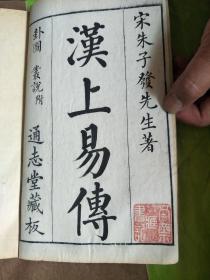 宋朱子發先生著
漢上易傳
卦圖 叢說附
通志堂藏板